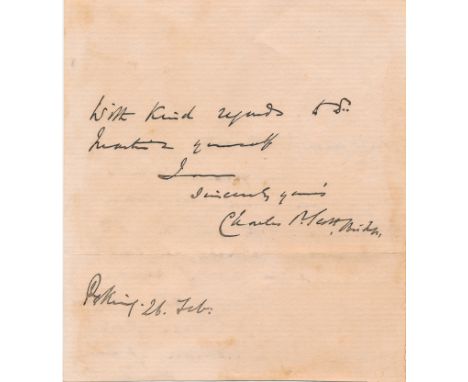 With Kind regards to Dr.
Martin & yourself
I am
Sincerely yours
Charles P. Scott, Bishop.
Peking. 26. Feb.